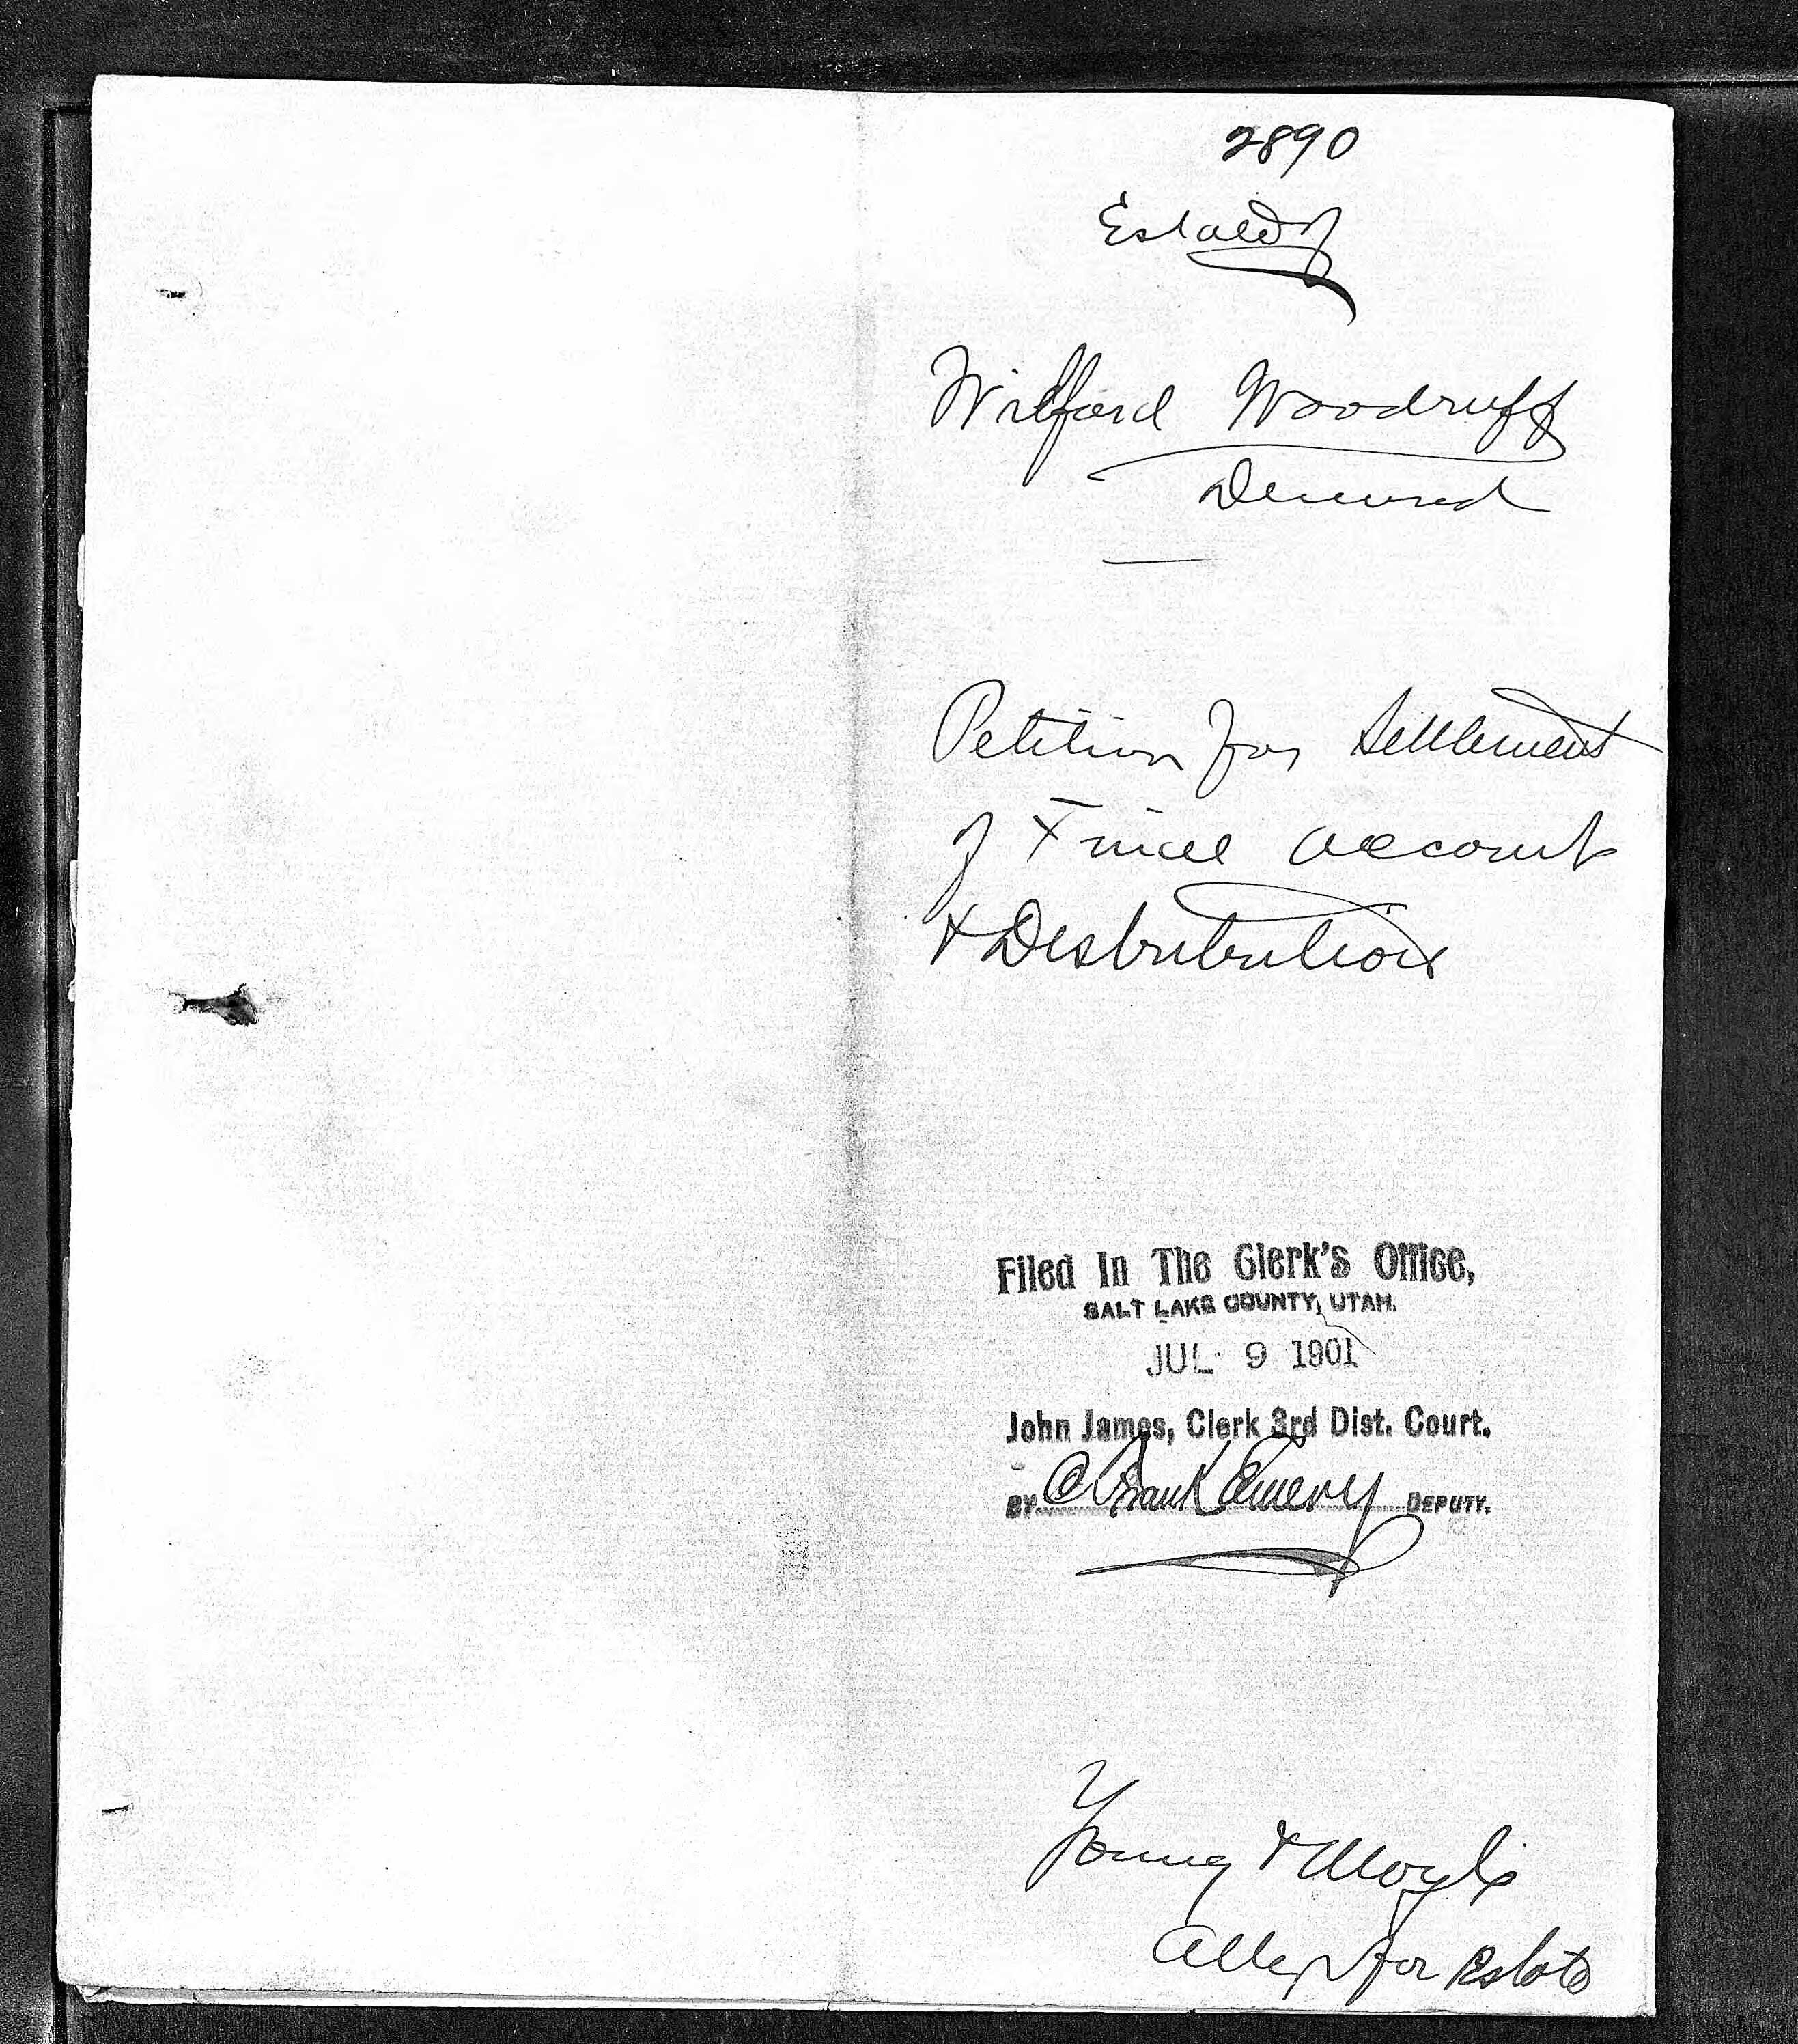 2890
Estate of
Wilford Woodruff
Deceased
Petition for Settlement
of Final account
& Distribution
Filed In The Clerk's Office,
SALT LAKE COUNTY, UTAH.
JUL 9 1901
John James, Clerk 3rd Dist. Court.
BY C Frank Emery DEPUTY.
Young & Moyle
Attys for Estate